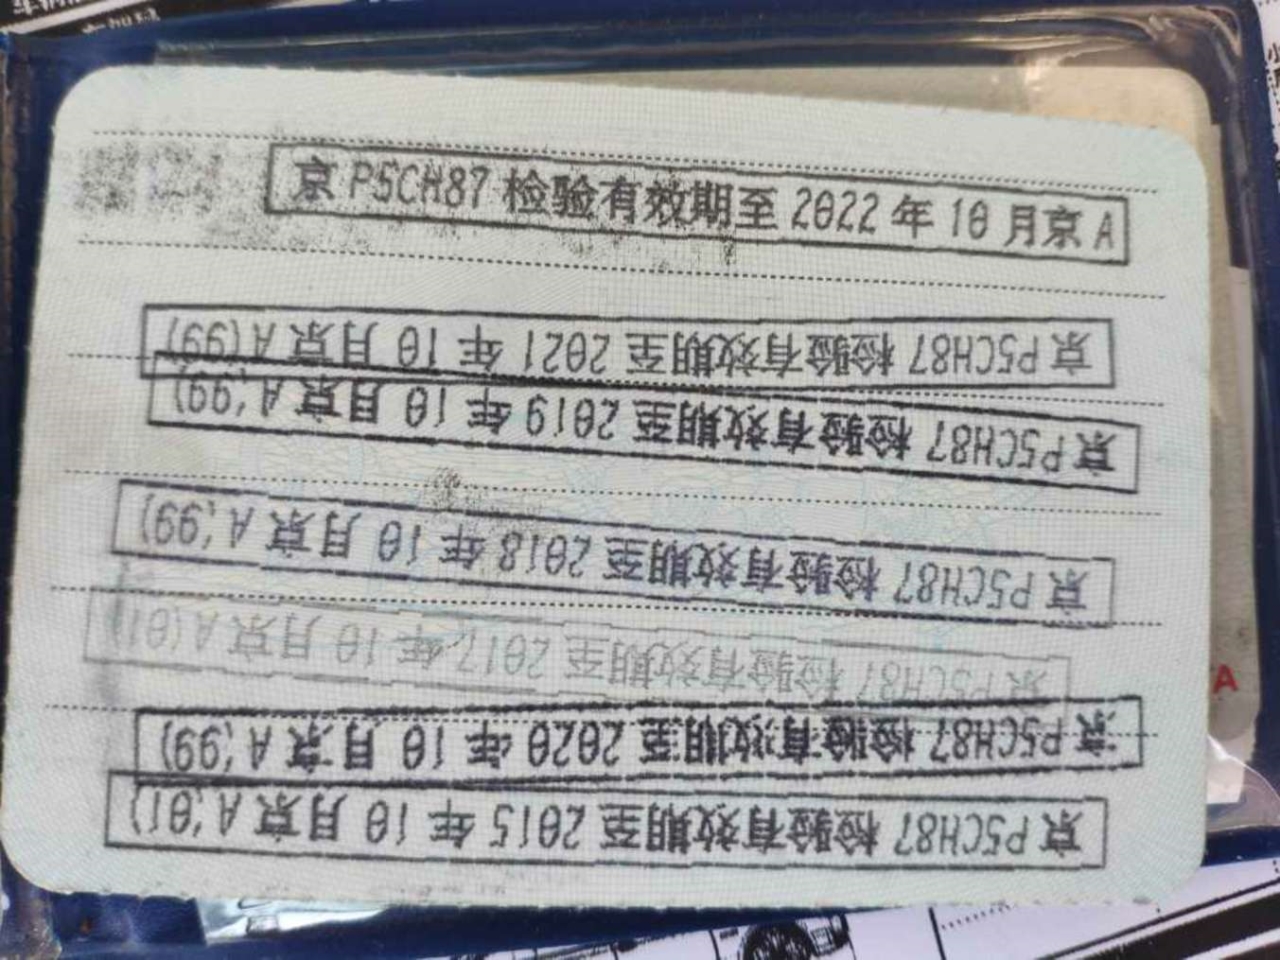 京 P5CH87 检验有效期至 2022 年 10 月京 A
京 P5CH87 检验有效期至 2021 年 10 月京 A(99)
京 P5CH87 检验有效期至 2019 年 10 月京 A(99)
京 P5CH87 检验有效期至 2018 年 10 月京 A(99)
京 P5CH87 检验有效期至 2017 年 10 月京 A(01)
京 P5CH87 检验有效期至 2020 年 10 月京 A(99)
京 P5CH87 检验有效期至 2015 年 10 月京 A(01)
A